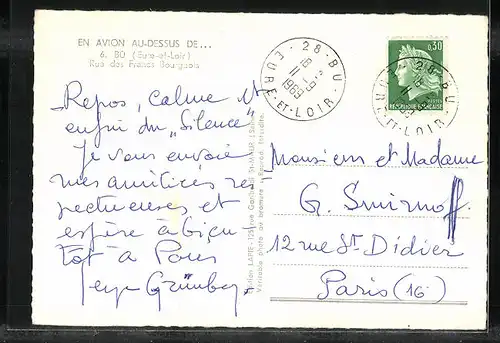 EN AVION AU-DESSUS DE...
6. BU (Eure-et-Loir)
Rue des Francs Bourgeois
28 - BU
EURE-ET-LOIR
1969
0,30
REPUBLIQUE FRANÇAISE
28 - BU
EURE-ET-LOIR
Repos, calme et
enfin du „Silence"
Je vous envoie
mes amitiés res
pectueuses et
espère à bien
tôt à Paris
Serge
Edition LAPIE
Véritable photo au bromure - Reprod. interdite.
Monsieur et Madame
G. Smirnoff
12 rue St. Didier
Paris (16)